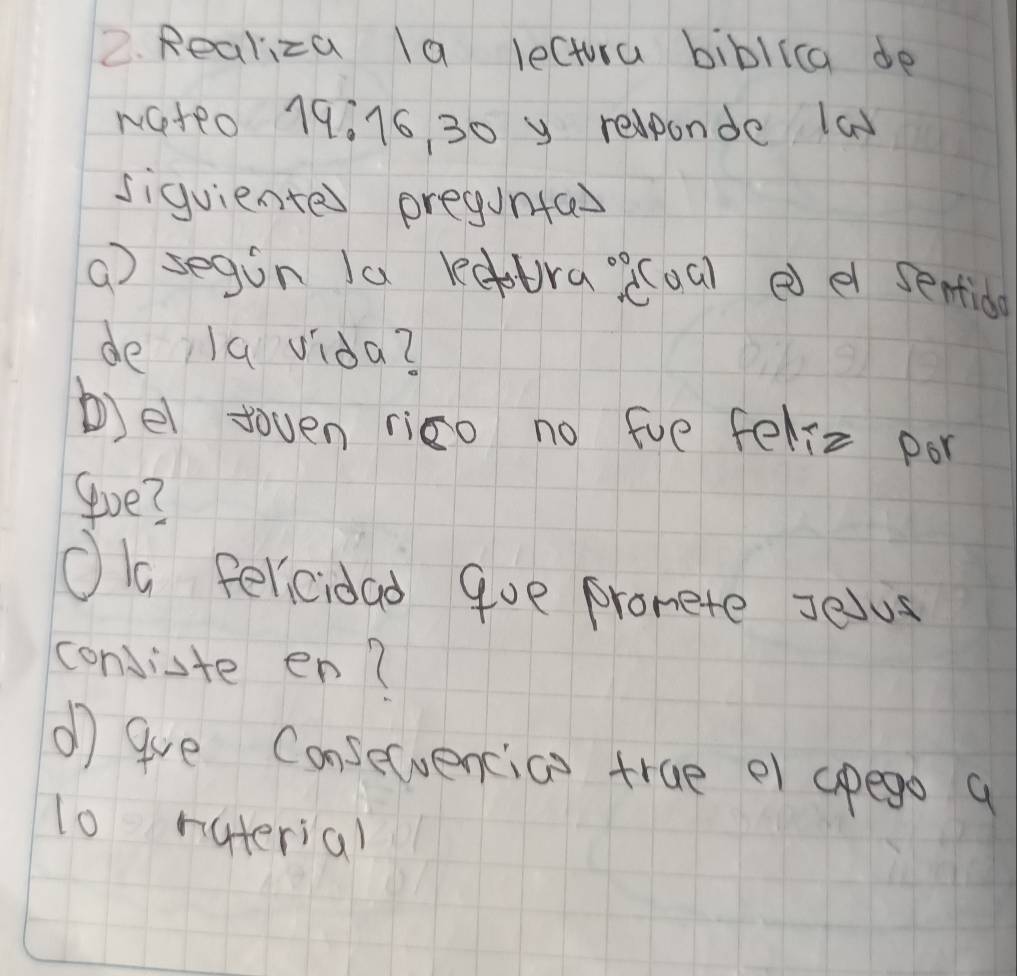 2. Realiza la lectura biblica de
mateo 19:16,30 y responde las
siguientes preguntas
a) según la lectura ¿Cual es el sentido
de la vida?
b) el joven rico no fue feliz por
que?
c) la felicidad que promete Jesus
consiste en?
d) que consecuencias trae el apego a
lo material